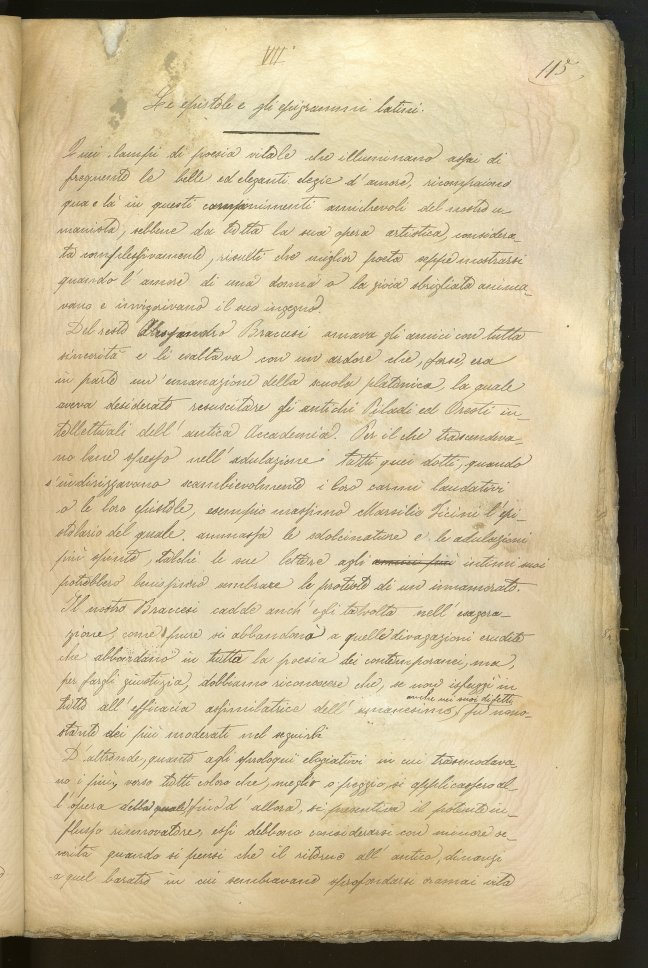 VII
115
Le epistole e gli epigrammi latini.
Quei lampi di poesia vitale che illuminano assai di
frequente le belle ed eleganti elegie d'amore, ricompaiono
qua e là in questi componimenti amichevoli del nostro u-
manista, sebbene da tutta la sua opera artistica, considera-
ta complessivamente, risulti che miglior poeta seppe mostrarsi
quando l'amore di una donna o la gioia sbrigliata anima-
vano e invigorivano il suo ingegno.
Del resto Alessandro Braccesi amava gli amici con tutta
sincerità e li esaltava con un ardore che, forse, era
in parte un'emanazione della scuola platonica, la quale
aveva desiderato resuscitare gli antichi Piladi ed Oresti in-
tellettuali dell'antica Accademia. Per il che trascendeva-
no bene spesso nell'adulazione tutti quei dotti, quando
s'indirizzavano scambievolmente i loro carmi laudativi
o le loro epistole, esempio massimo Marsilio Ficini l'epi-
stolario del quale ammassa le sdolcinature e le adulazioni
più spinte, talchè le sue lettere agli amici più intimi suoi
potrebbero benissimo sembrare le proteste di un innamorato.
Il nostro Braccesi cadde anch'egli talvolta nell'esagera-
zione, come pure si abbandonò a quelle divagazioni erudite
che abbondano in tutta la poesia dei contemporanei, ma,
per fargli giustizia, dobbiamo riconoscere che, se non isfuggì in
anche nei suoi difetti,
tutto all'efficacia assimilatrice dell'umanesimo, fu nono-
stante dei più moderati nel seguirli
D'altronde, quanto agli sproloqui elogiativi in cui trasmodava-
no i più, verso tutti coloro che, meglio o peggio, si applicassero al-
l'opera della quale, fino d'allora, si presentiva il potente in-
flusso rinnovatore, essi debbono considerarsi con minore se-
verità quando si pensi che il ritorno all'antico, dinanzi
a quel baratro in cui sembravano sprofondarsi oramai vita